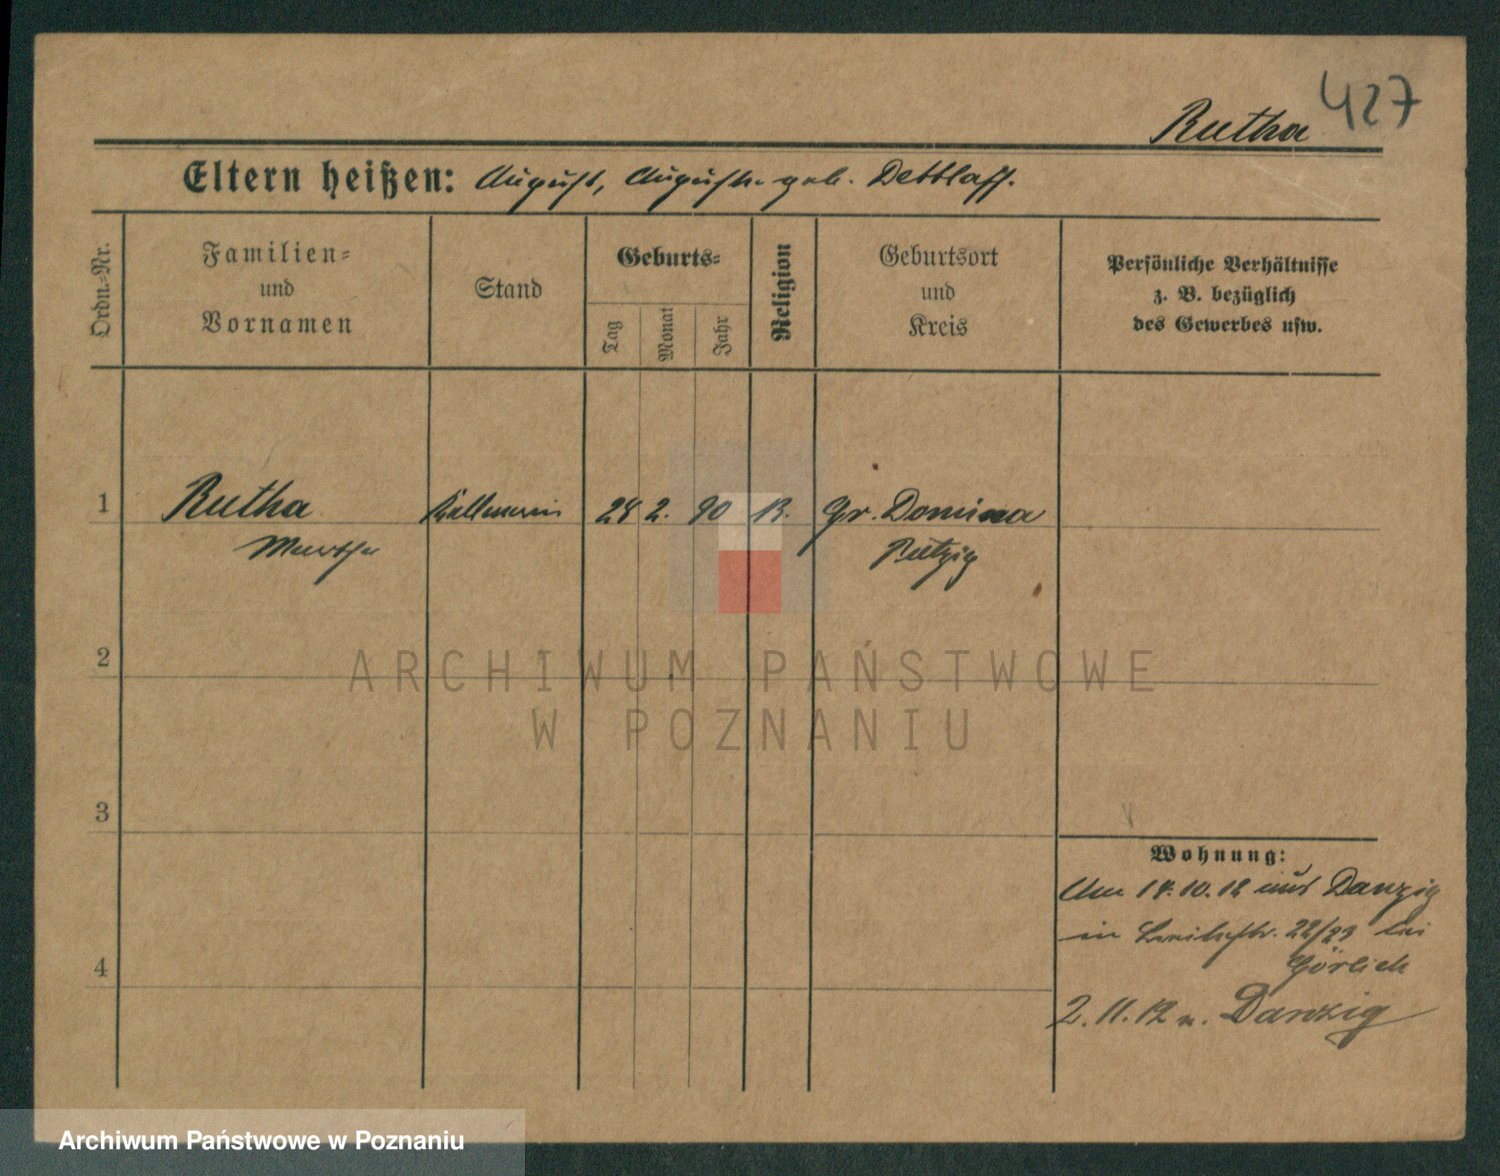 427
Rutha
Eltern heißen: August, August. geb. Dettlaff.
Ordn.-Nr.
Familien-
und
Vornamen
Stand
Geburts-
Tag
Monat
Jahr
Religion
Geburtsort
und
Kreis
Persönliche Verhältnisse
z. B. bezüglich
des Gewerbes usw.
1 Rutha Kellnerin 28 2. 90 K. Gr. Domina
Martha Putzig
2
ARCHIWUM PAŃSTWOWE
W POZNANIU
3
Wohnung:
Am 18.10.12 aus Danzig
in 22/23 bei
Görlich
4
2.11.12 n. Danzig
Archiwum Państwowe w Poznaniu